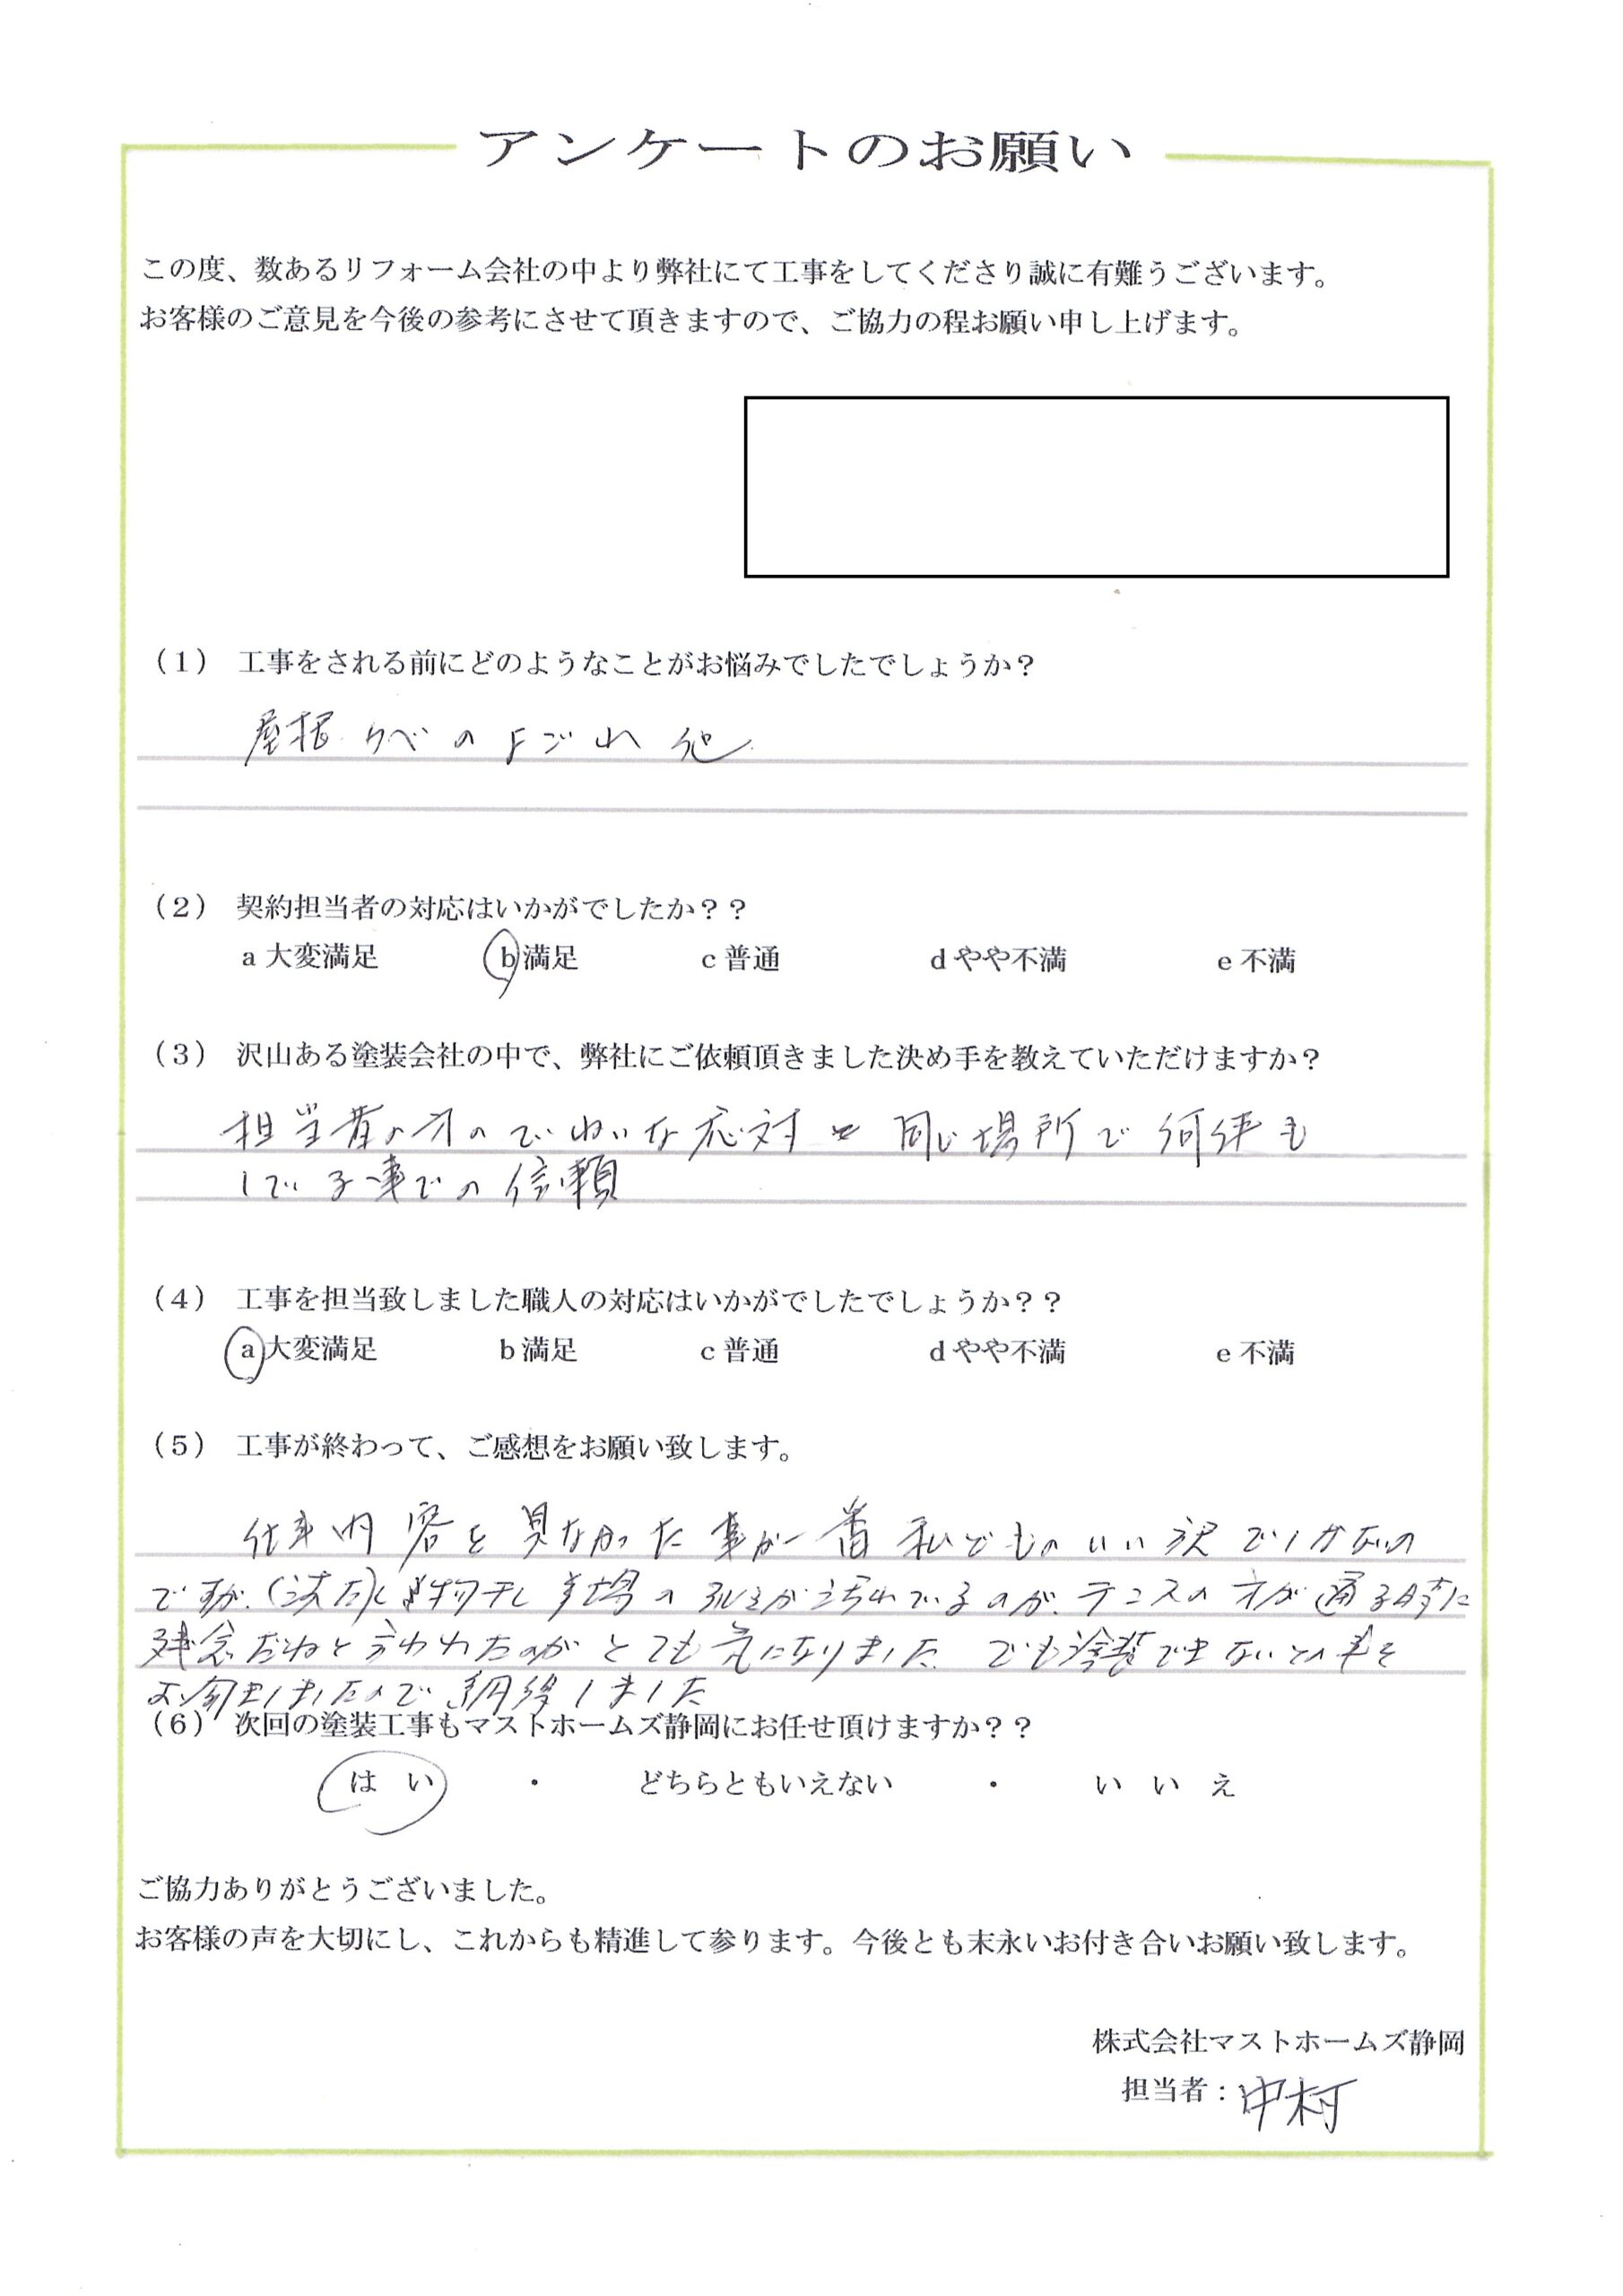 アンケートのお願い
この度、数あるリフォーム会社の中より弊社にて工事をしてくださり誠に有難うございます。
お客様のご意見を今後の参考にさせて頂きますので、ご協力の程お願い申し上げます。
（1） 工事をされる前にどのようなことがお悩みでしたでしょうか？
屋根 カベのよごれ 他
（2） 契約担当者の対応はいかがでしたか？？
a 大変満足 b 満足 c 普通 d やや不満 e 不満
（3） 沢山ある塗装会社の中で、弊社にご依頼頂きました決め手を教えていただけますか？
担当者の方のていねいな応対と同じ場所で何件も
している事での信頼
（4） 工事を担当致しました職人の対応はいかがでしたでしょうか？？
a 大変満足 b 満足 c 普通 d やや不満 e 不満
（5） 工事が終わって、ご感想をお願い致します。
仕事内容を見なかった事が一番私どものいい訳でしかないの
ですが、物干し場のが汚れているのが、テニスの方が通る時に
残念だねと言われたのがとても気になりました でも塗装できないという事を
お伺いしましたので納得しました
（6） 次回の塗装工事もマストホームズ静岡にお任せ頂けますか？？
はい ・ どちらともいえない ・ いいえ
ご協力ありがとうございました。
お客様の声を大切にし、これからも精進して参ります。今後とも末永いお付き合いお願い致します。
株式会社マストホームズ静岡
担当者：中村